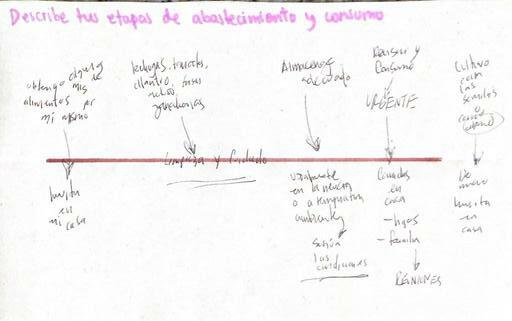 Describe tus etapas de abastecimiento y consumo
obtengo algunos
de mis
alimentos por
mi mismo
huerta
en
mi casa
lechugas, tomates,
cilantro,
zanahorias
Limpieza y Cuidado
Almacenaje
adecuado
usualmente
en la nevera
o a temperatura
ambiente
según
las
condiciones
Revisar y
Consumo
URGENTE
Comidas
en
casa
- hijos
- familia
REUNIONES
Cultivo
con
las
semillas
o
De
nuevo
huerta
en
casa